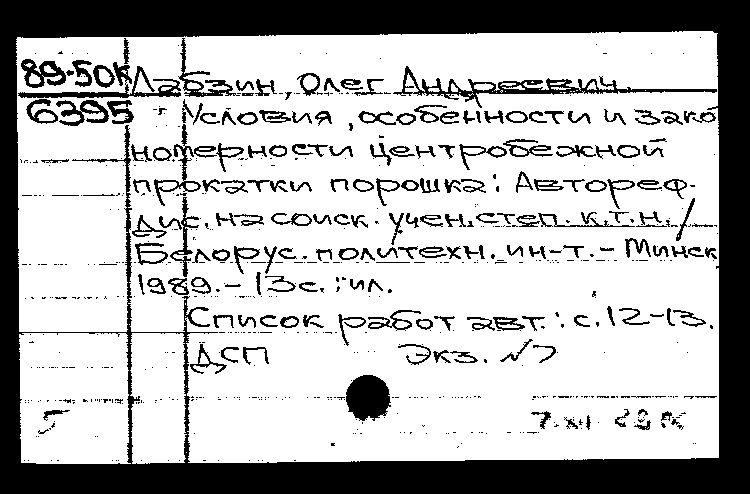 89-50к Лабзин, Олег Андреевич.
6395 Условия, особенности и зако
номерности центробежной
прокатки порошка: Автореф.
дис. на соиск. учен. степ. к.т.н. /
Белорус. политехн. ин-т. – Минск
1989. – 13с. : ил.
Список работ авт.: с. 12-13.
ДСП Экз. №
5 7. XII